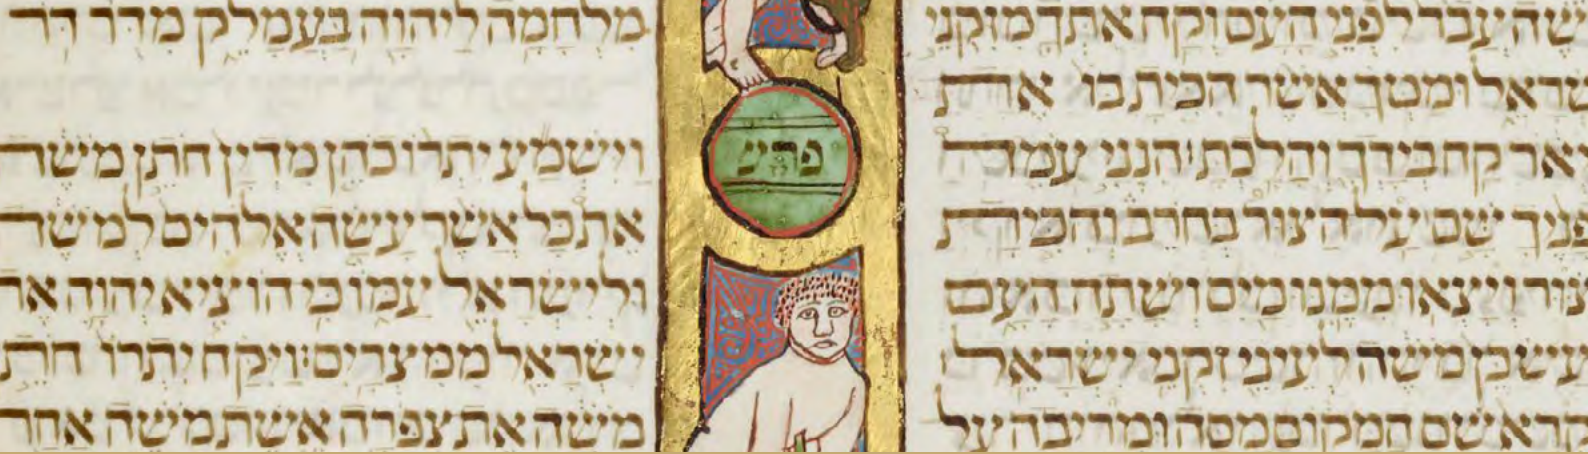 שה עבר לפני העם וקח אתך מזקני
שראל ומטך אשר הכית בו את
יאר קח בידך והלכת׃ הנני עמד
פניך שם על הצור בחרב והכית
צור ויצאו ממנו מים ושתה העם
עש כן משה לעיני זקני ישראל׃
קרא שם המקום מסה ומריבה על
פרש
מלחמה ליהוה בעמלק מדר דר
וישמע יתרו כהן מדין חתן משה
את כל אשר עשה אלהים למשה
ולישראל עמו כי הוציא יהוה את
ישראל ממצרים׃ ויקח יתרו חת
משה את צפרה אשת משה אחר